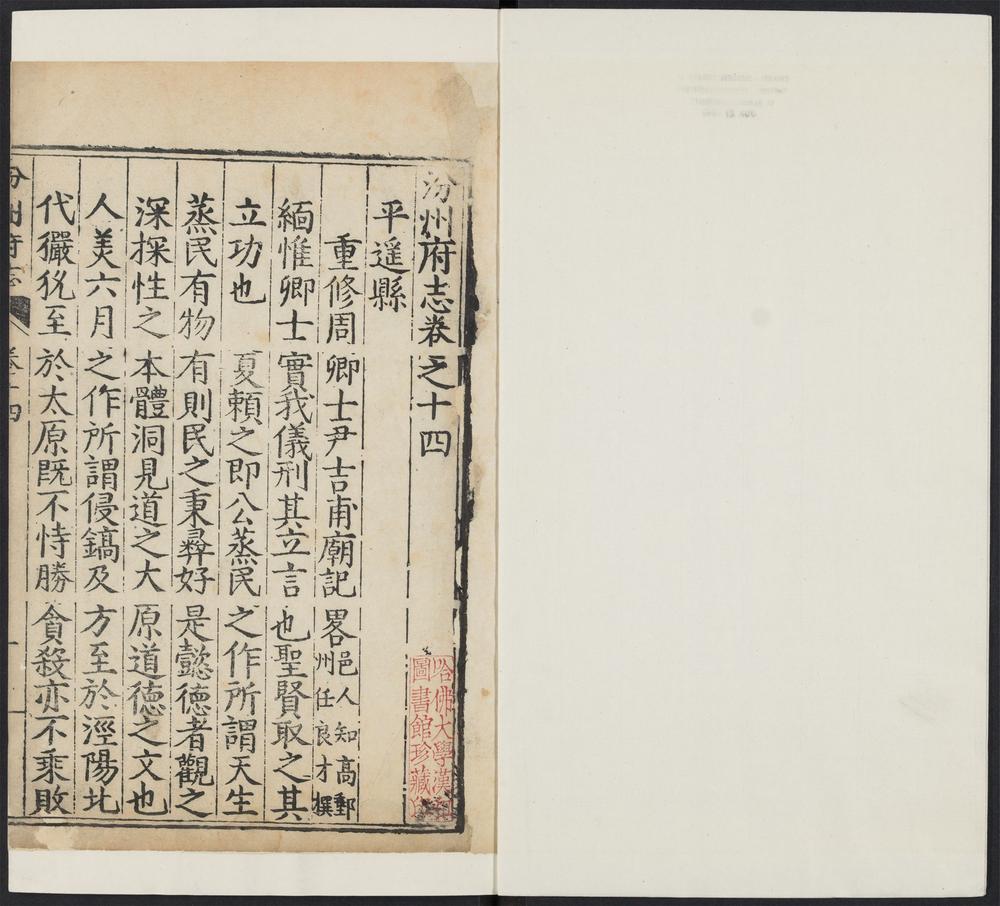 汾州府志卷之十四
平遥縣
重修周卿士尹吉甫廟記畧邑人知高郵州任良才撰
緬惟卿士實我儀刑其立言也聖賢取之其
立功也夏頼之即八公蒸民之作所謂天生
蒸民有物有則民之秉彛好是懿德者觀之
深探性之本體洞見道之大原道德之文也
人美六月之作所謂侵鎬及方至於涇陽北
代玁狁至於太原既不恃勝貪殺亦不乘敗
汾州府志 卷十四 一
哈佛大學漢和
圖書館珍藏印